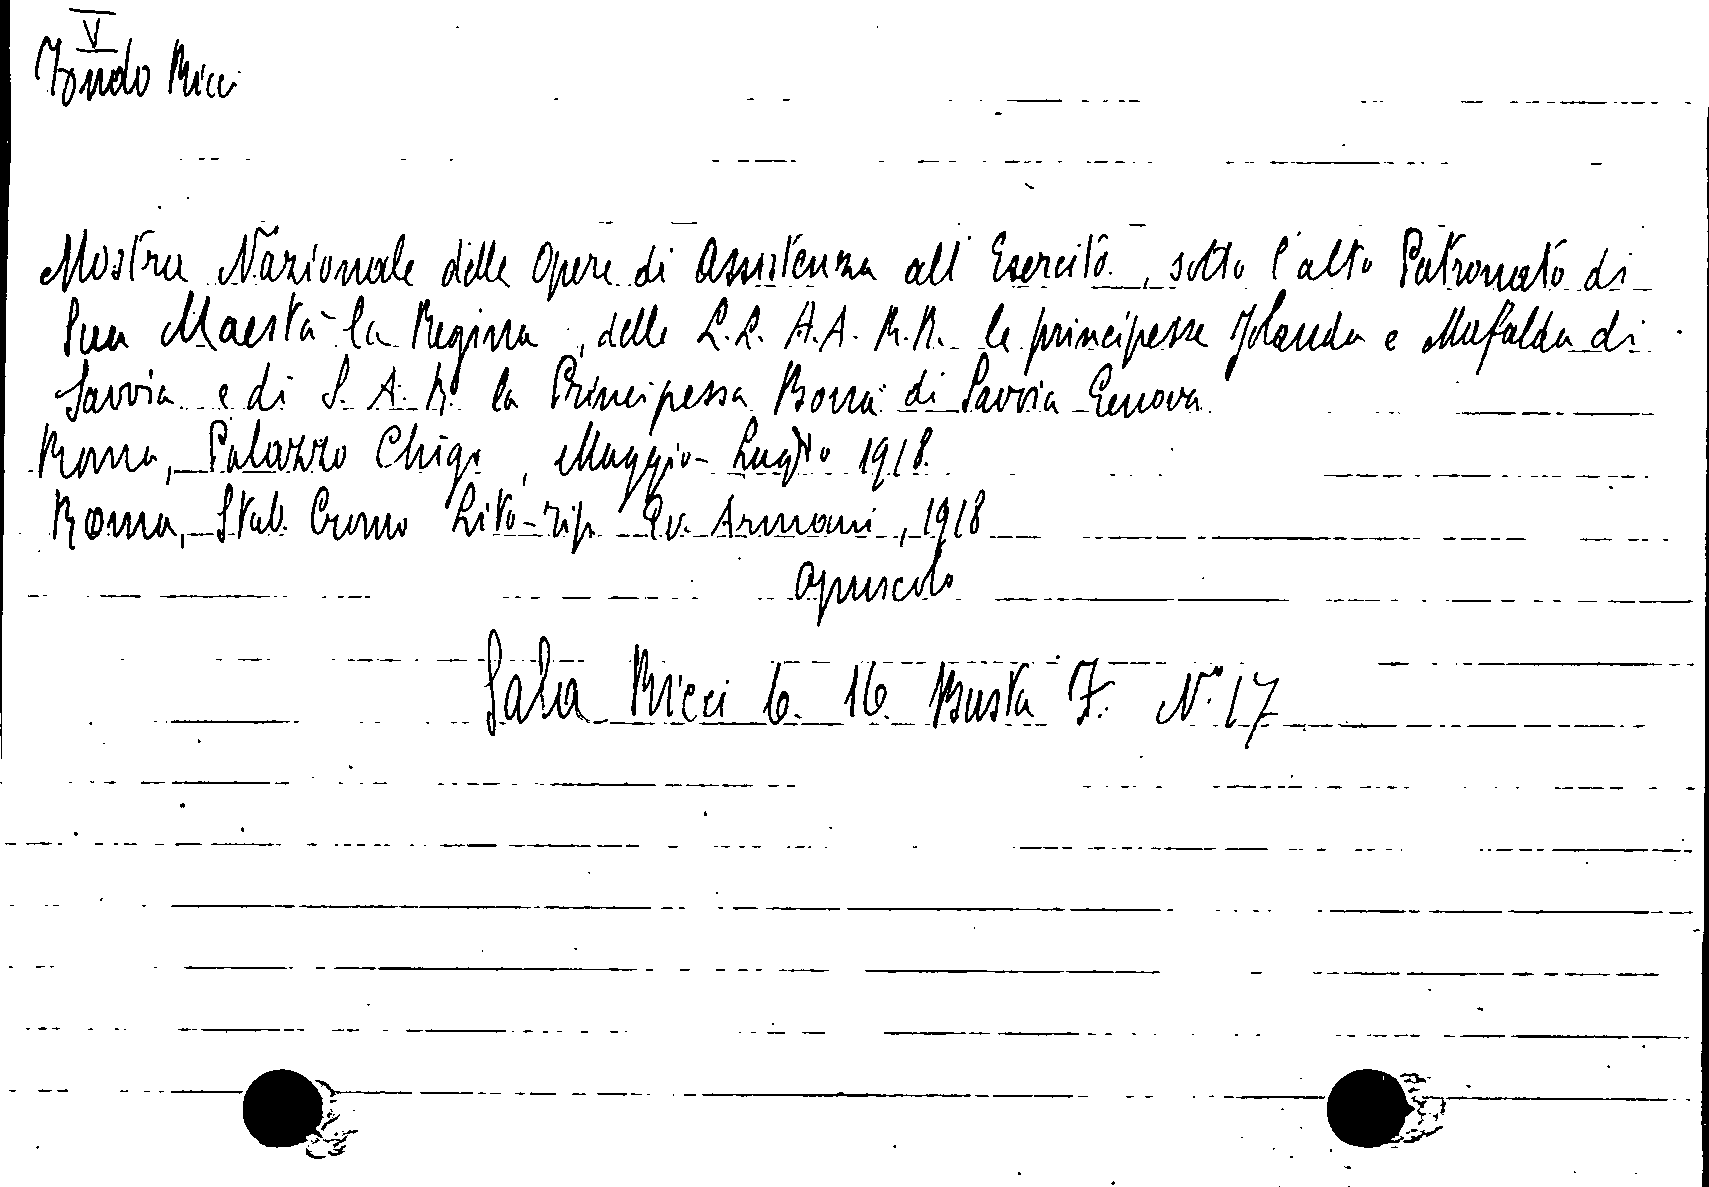 V
Fondo Ricci
Mostra Nazionale delle Opere di Assistenza all'Esercito, sotto l'alto Patronato di
Sua Maestà la Regina, delle L.L. A.A. R.R. le principesse Jolanda e Mafalda di
Savoia e di S. A. R. la Principessa Bona di Savoia Genova
Roma, Palazzo Chigi, Maggio-Luglio 1918.
Roma, Stab. Cromo Lito-Tip. Ev. Armani, 1918
opuscolo
Sala Ricci 6. 16. Busta 7. N° 17